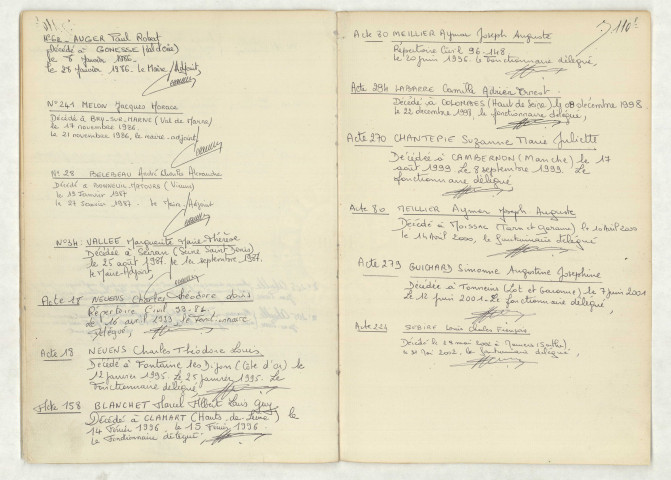 N° 62 - AUGER Paul Robert
Décédé à GONESSE (Val d'Oise)
le 8 janvier 1986.
le 28 janvier 1986. le Maire Adjoint,
N° 241. MELON Jacques Horace
Décédé à BRY-SUR-MARNE (Val de Marne)
le 17 novembre 1986.
le 21 novembre 1986, le maire-adjoint,
N° 28 BRLEBEAU André Charles Alexandre
Décédé à BONNEUIL MATOURS (Vienne)
le 19 Janvier 1987
le 27 Janvier 1987. le Maire Adjoint
N° 34: VALLEE Marguerite Marie-Thérèse
Décédée à Sevran (Seine Saint Denis)
le 25 août 1987. le 1er septembre 1987.
le Maire-Adjoint,
Acte 18 NEVENS Charles Théodore Louis
Répertoire Civil 93-
le 16 avril 1993, le Fonctionnaire
Délégué,
Acte 18 NEVENS Charles Théodore Louis
Décédé à Fontaine les Dijon (Côte d'Or) le
12 janvier 1995. Le 25 janvier 1995. Le
Fonctionnaire délégué
Acte 158 BLANCHET Marcel Albert Louis Guy
Décédé à CLAMART (Hauts de Seine) le
14 Février 1996. le 15 Février 1996.
le Fonctionnaire délégué
110
Acte 80 MEILLIER Aymar Joseph Auguste
Répertoire Civil 96-148
le 20 juin 1996. le Fonctionnaire délégué,
Acte 294 LABARRE Camille Adrien Ernest.
Décédé à COLOMBES (Haut de Seine) le 08 décembre 1998
le 22 décembre 1998 le fonctionnaire délégué,
Acte 270 CHANTEPIE Suzanne Marie Juliette
Décédée à CAMBERNON (Manche) le 17
août 1999. Le 8 septembre 1999. Le
fonctionnaire délégué
Acte 80 MEILLIER Aymar Joseph Auguste
Décédé à Moissac (Tarn et Garonne) le 10 Avril 2000
le 14 Avril 2000, le fonctionnaire délégué
Acte 279 GUICHARD Simonne Augustine Josephine
Décédée à Tonneins (Lot et Garonne) le 7 juin 2001
Le 12 juin 2001. Le fonctionnaire délégué,
Acte 224 Louis Charles François
Décédé le 29 mai 2002 à Mamers (Sarthe).
le 31 Mai 2002. le fonctionnaire délégué,